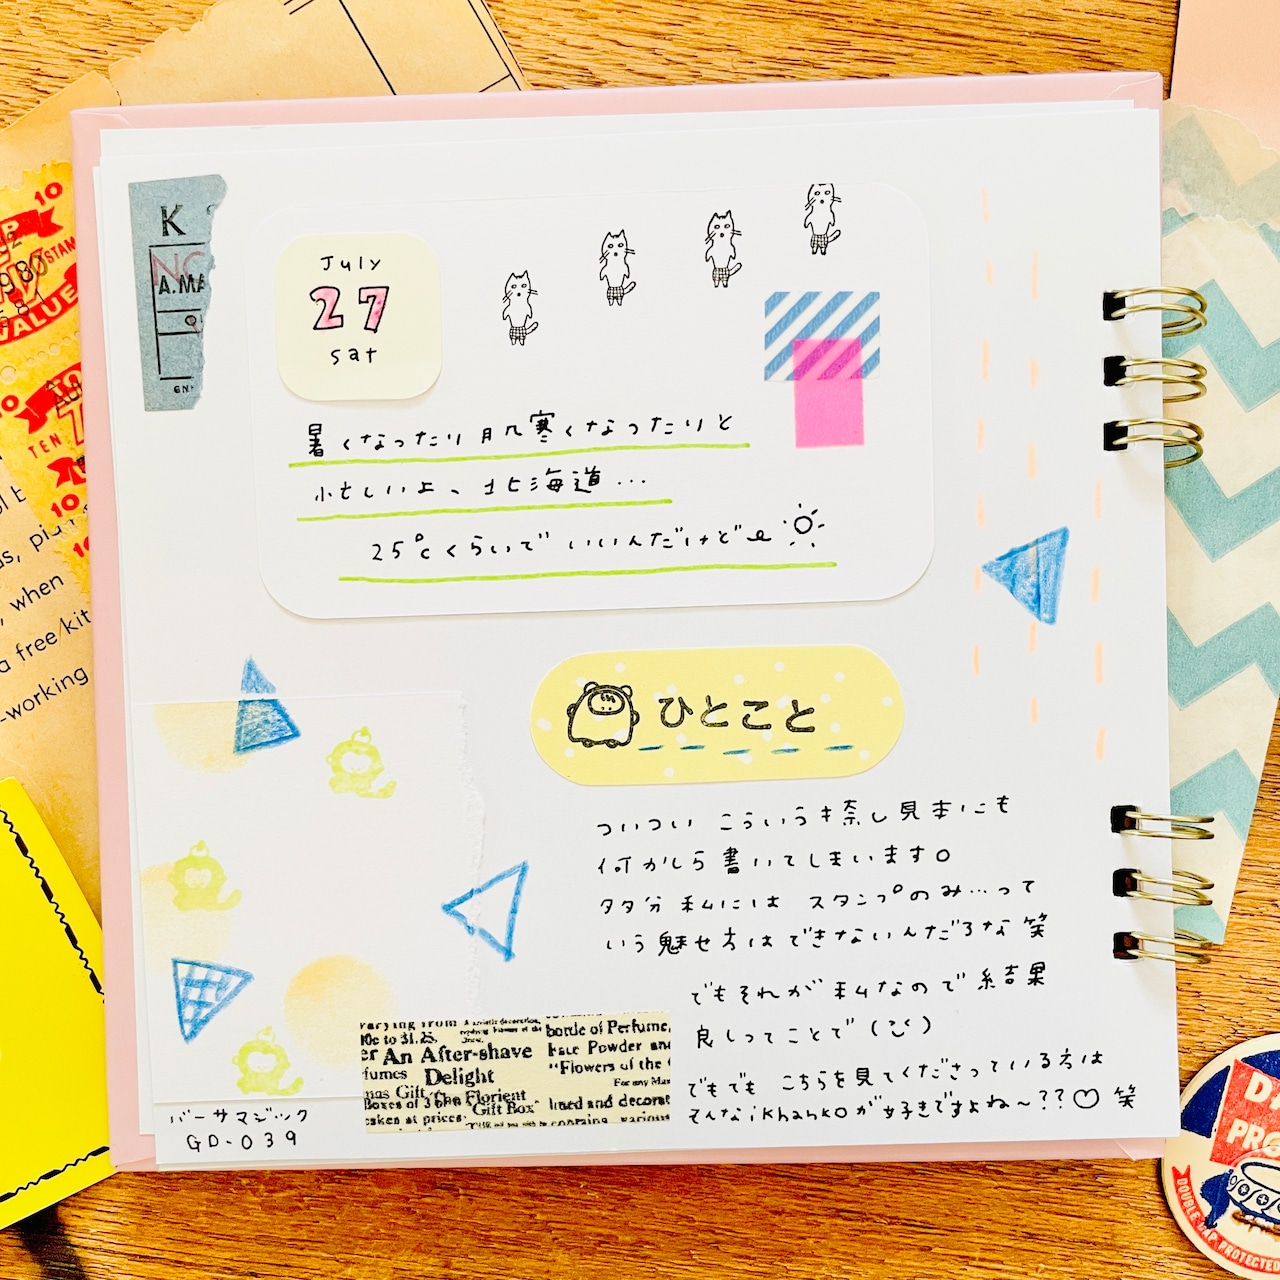 K
NO
A.MA
July
27
sat
暑くなったり肌寒くなったりと
忙しいよ、北海道...
25℃くらいで いいんだけど
ひとこと
ついつい こういう捺し見本にも
何かしら書いてしまいます。
多分 私には スタンプのみ…って
いう魅せ方はできないんだろな 笑
でもそれが 私なので 結果
良しってことで
でもでも こちらを見てくださっている方は
そんなikhankoが好きですよね〜??♡ 笑
varying from
10c to 31.25.
er An After-shave
fumes Delight
mas Gift
Boxes of 3 The Florient
cakes at prices Gift Box"
bottle of Perfume,
Face Powder and
"Flowers of the
For any Man
lined and decorat
contains various
バーサマジック
GD-039
10
STAM
1980
VALUE
10
TEN
10
as, pi
, when
a free kit
-working
DOUBLE CAP PROTECTED